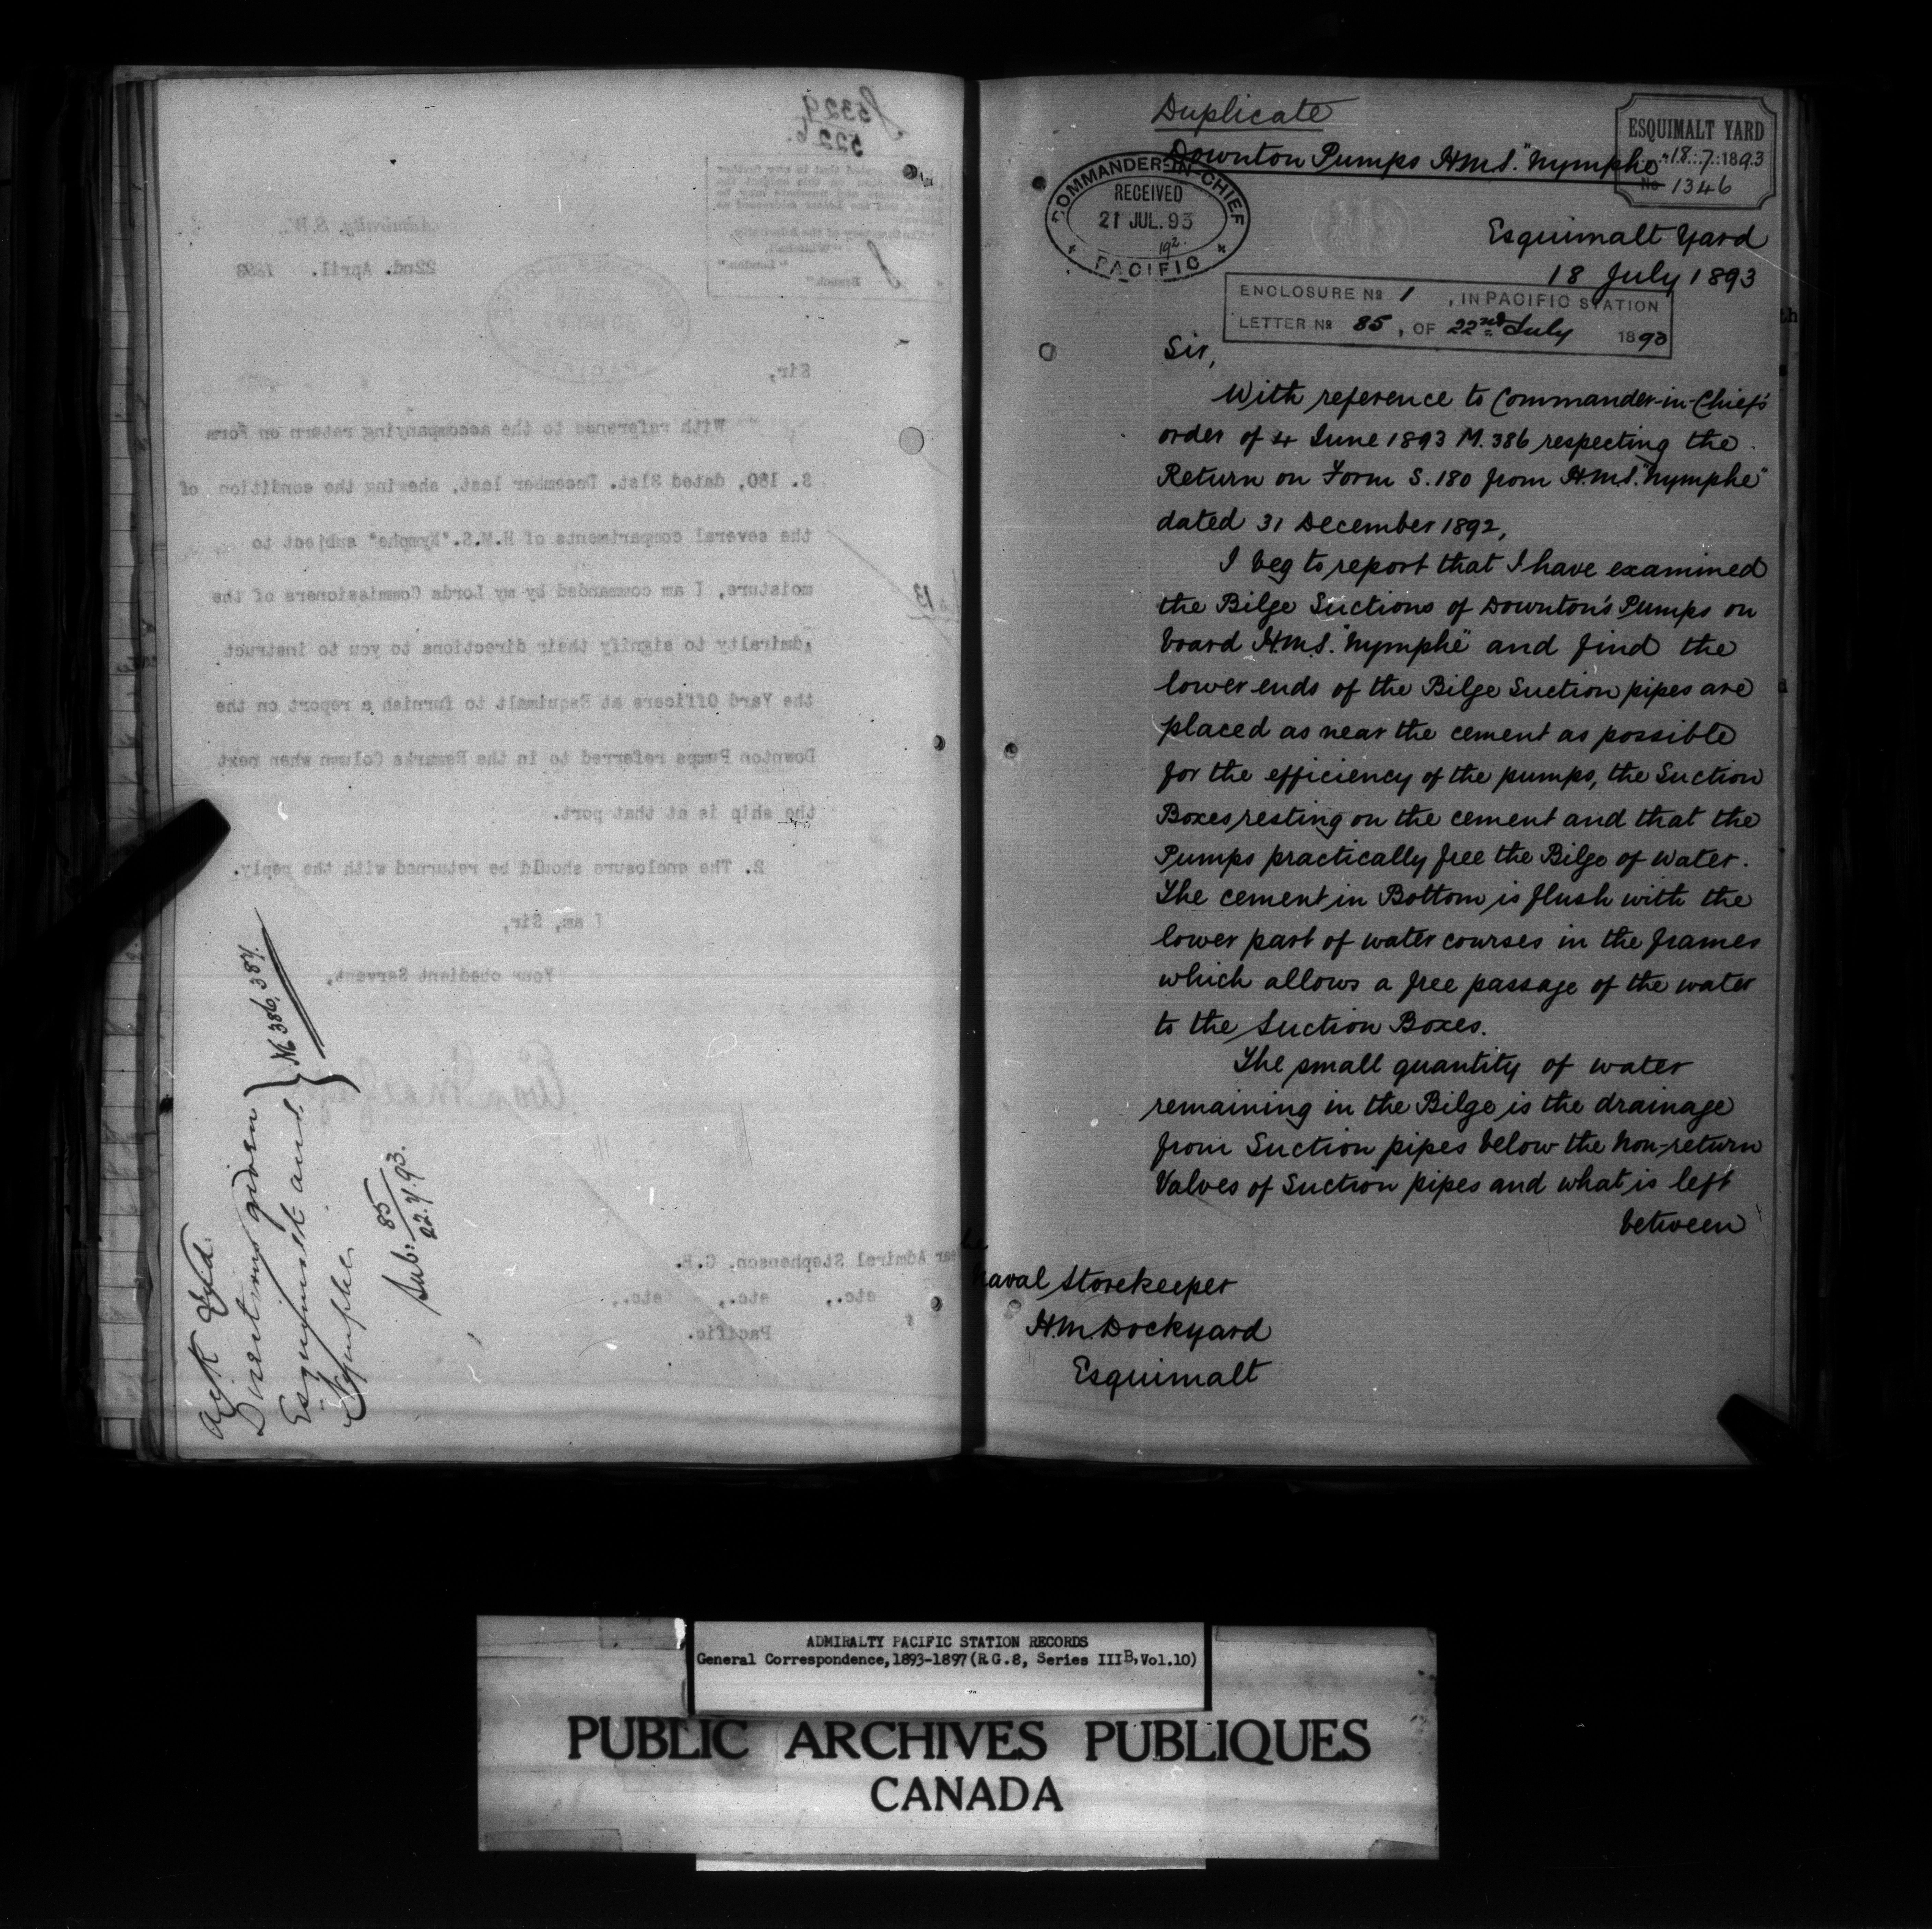 J5329
5226
Admiralty, S.W.
22nd. April. 1893
Sir,
With reference to the accompanying return on Form
S. 180, dated 31st. December last, shewing the condition of
the several compartments of H.M.S."Nymphe" subject to
moisture, I am commanded by my Lords Commissioners of the
Admiralty to signify their directions to you to instruct
the Yard Officers at Esquimalt to furnish a report on the
Downton Pumps referred to in the Remarks Column when next
the ship is at that port.
2. The enclosure should be returned with the reply.
I am, Sir,
Your obedient Servant,
Rear Admiral Stephenson, C.B.
etc., etc., etc.,
Pacific.
Directions given
Esquimalt and
Nymphe
386, 387.
Sub: 85
22.7.93.
Duplicate
Downton Pumps H.M.S. "Nymphe"
ESQUIMALT YARD
18.7.1893
No 1346
COMMANDER-IN-CHIEF
RECEIVED
21 JUL.93
192.
PACIFIC
Esquimalt Yard
18 July 1893
ENCLOSURE No 1, IN PACIFIC STATION
LETTER No 85, OF 22nd July 1893
Sir,
With reference to Commander-in-Chief's
order of 4 June 1893 M.386 respecting the
Return on Form S.180 from H.M.S. "Nymphe"
dated 31 December 1892,
I beg to report that I have examined
the Bilge Suctions of Downton's Pumps on
board H.M.S. "Nymphe" and find the
lower ends of the Bilge Suction pipes are
placed as near the cement as possible
for the efficiency of the pumps, the Suction
Boxes resting on the cement and that the
Pumps practically free the Bilge of water.
The cement in Bottom is flush with the
lower part of water courses in the frames
which allows a free passage of the water
to the Suction Boxes.
The small quantity of water
remaining in the Bilge is the drainage
from Suction pipes below the Non-return
Valves of Suction pipes and what is left
between
Naval Storekeeper
H.M. Dockyard
Esquimalt
ADMIRALTY PACIFIC STATION RECORDS
General Correspondence,1893-1897(R.G.8, Series IIIB,Vol.10)
PUBLIC ARCHIVES PUBLIQUES
CANADA